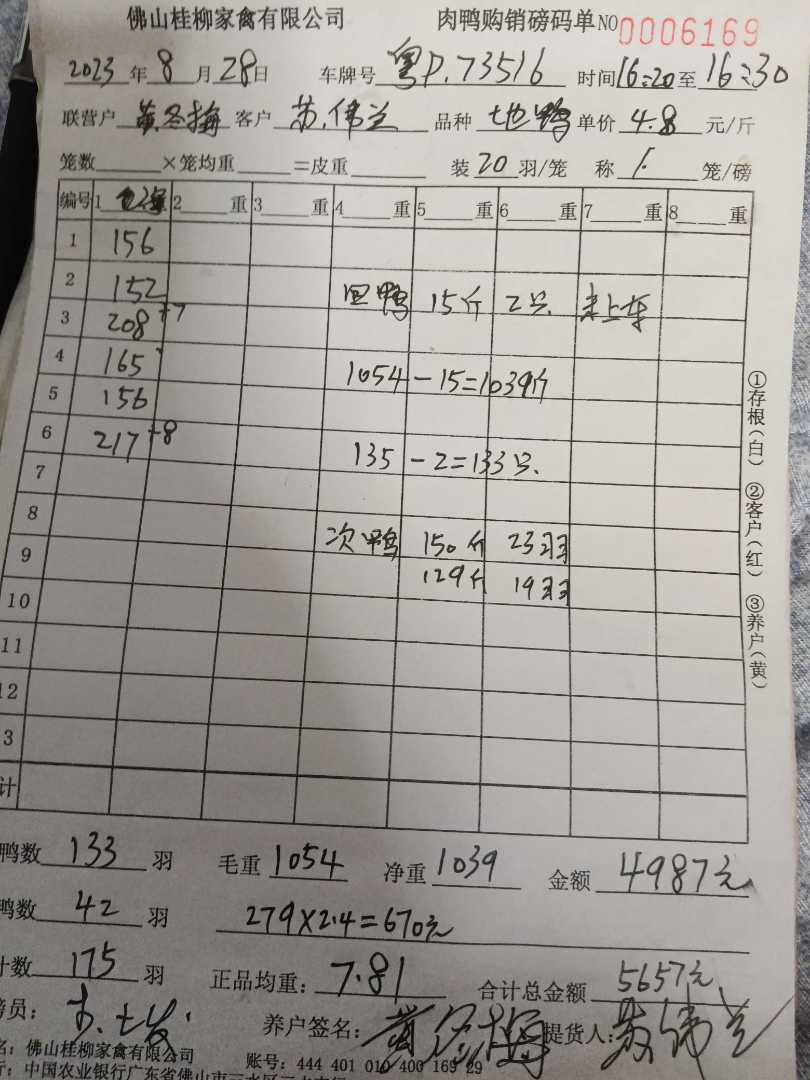 佛山桂柳家禽有限公司 肉鸭购销磅码单 NO 0006169
2023年8月28日 车牌号 粤P.73516 时间16:20至16:30
联营户 黄冬梅 客户 苏伟兰 品种 地鸭 单价 4.8 元/斤
笼数 ×笼均重 =皮重 装20羽/笼 称 笼/磅
编号 1 重 2 重 3 重 4 重 5 重 6 重 7 重 8 重
1 156
2 152 回鸭 15斤 2只 未上车
3 208 +7
4 165 1054-15=1039斤
5 156
6 217 +8 135-2=133只.
7
8 次鸭 150斤 23羽
9 129斤 19羽
10
11
12
3
计
①存根(白) ②客户(红) ③养户(黄)
鸭数 133 羽 毛重 1054 净重 1039 金额 4987元
鸭数 42 羽 279×2.4=670元
计数 175 羽 正品均重: 7.81 合计总金额 5657元
磅员: 养户签名: 黄冬梅 提货人:
名: 佛山桂柳家禽有限公司 账号: 444 401 010 400 169 29
行: 中国农业银行广东省佛山市三水区